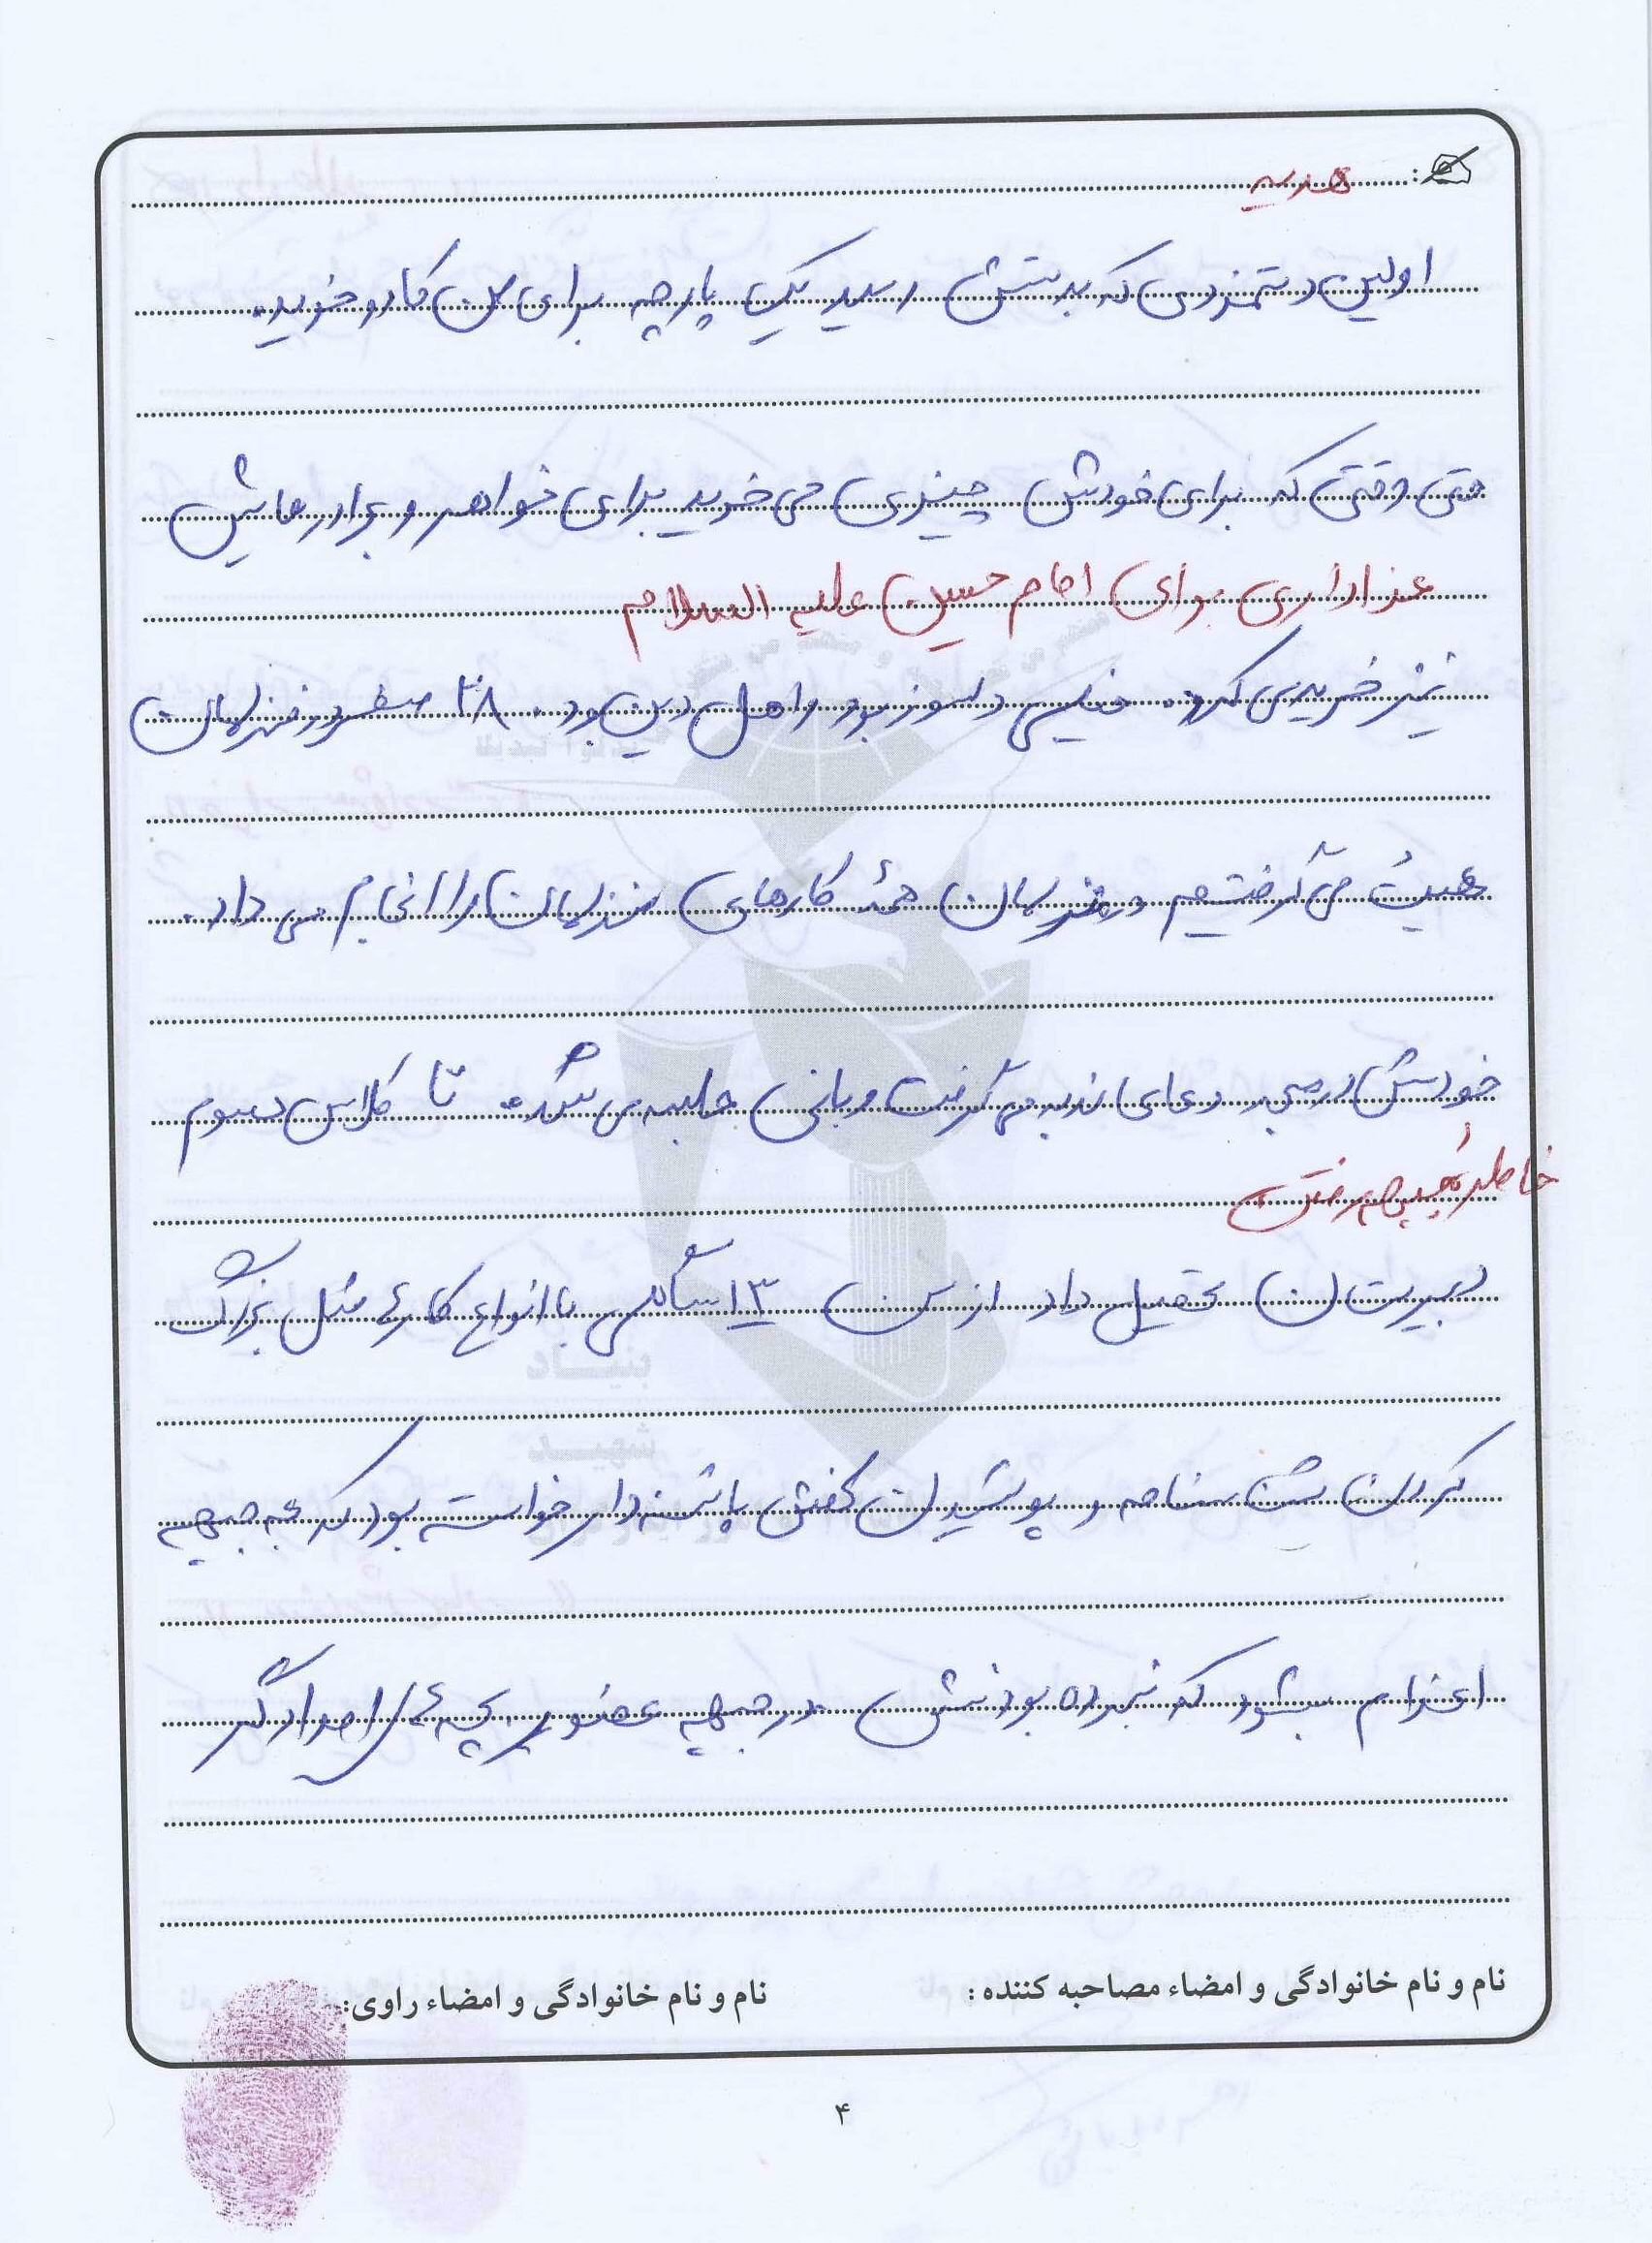 هدیه
اولین دستمزدی که بدستش رسید یک پارچه برای من کادو خرید.
حتی وقتی که برای خودش چیزی می خرید برای خواهر و برادرهایش
عزاداری برای امام حسین علیه السلام
نیز خریدی کرد. خیلی دلسوز بود و اهل دین بود. ۲۸ صفر در منزلمان
هیئت می گرفتیم در منزلمان همه کارهای منزلمان را انجام می داد.
خودش در مسجد دعای ندبه می گرفت و بانی جلسه می شد. تا کلاس سوم
خاطره جبهه رفتن
دبیرستان تحصیل داد از سن ۱۳ سالگی با انواع کارها مثل بزرگ
کردن شناسنامه و پوشیدن کفش پاشنه دار خواسته بود که به جبهه
اعزام بشود که نبرده بودنش در جبهه عضو بچه های امدادگر
نام و نام خانوادگی و امضاء مصاحبه کننده :
نام و نام خانوادگی و امضاء راوی:
۴